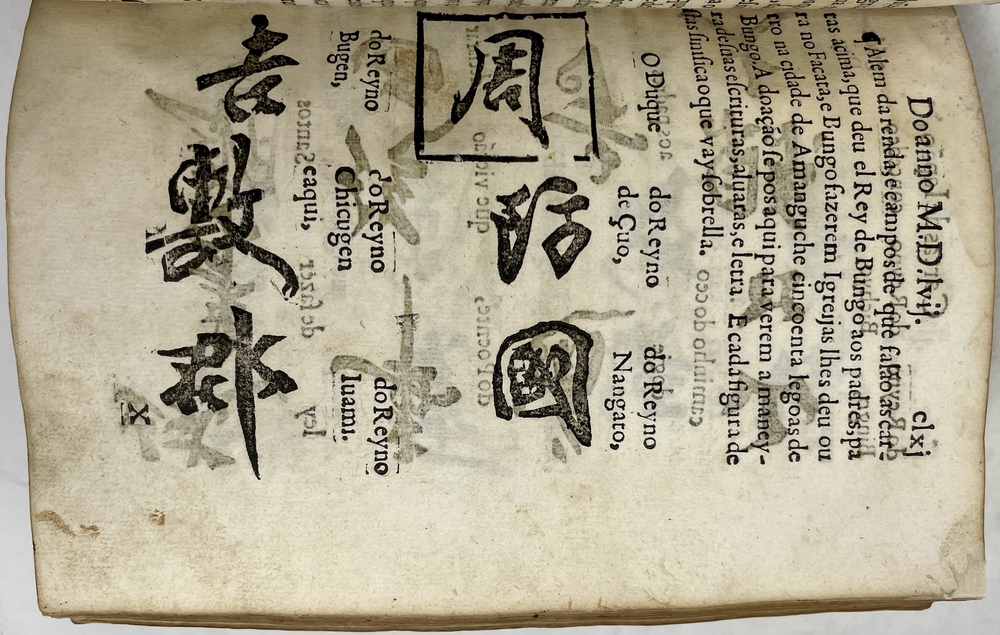 Do anno M.D.lvij. clxj
¶ Alem da renda, e campos de que falão as car-
tas acima, que deu el Rey de Bungo aos padres, pa
ra no Facara, e Bungo fazerem Igreijas lhes deu ou
tro na cidade de Amanguche cincoenta legoas de
Bungo. A doação se pos aqui para verem a maney-
ra de suas escrituras, aluaras, e letra. E cada figura de
stas sinifica o que vay sobrella.
O Duque do Reyno do Reyno
de Çuo, Nangato,
周 防 國
do Reyno do Reyno do Reyno
Bugen, Chicugen Iuami.
吉 敷 郡
X